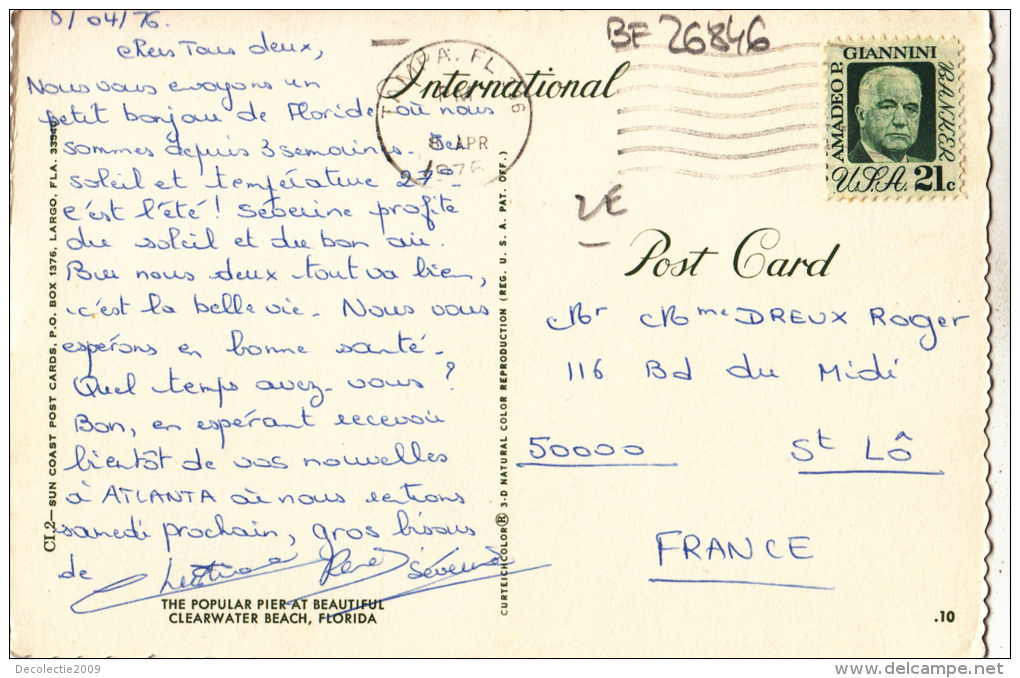 /04/76.
chers Tous deux,
Nous vous envoyons un
petit bonjour de Floride où nous
sommes depuis 3 semaines. Bel
soleil et température 27° -
c'est l'été! Séverine profite
du soleil et du bon air.
nous deux tout va bien,
c'est la belle vie. Nous vous
espérons en bonne santé -
Quel temps avez-vous?
Bon, en espérant recevoir
bientôt de vos nouvelles
à ATLANTA où nous rentrons
samedi prochain, gros bisous
de René Séverine
THE POPULAR PIER AT BEAUTIFUL
CLEARWATER BEACH, FLORIDA
CL.2—SUN COAST POST CARDS, P.O. BOX 1376, LARGO, FLA. 33540
CURTEICHCOLOR® 3-D NATURAL COLOR REPRODUCTION (REG. U. S. A. PAT. OFF.)
International
TAMPA. FL
8 APR
1976
BF 26846
AMADEO P. GIANNINI BANKER
U.S.A. 21c
2€
Post Card
Mr Mme DREUX Roger
116 Bd du Midi
50000 St LÔ
FRANCE
.10
Decolectie2009
www.delcampe.net